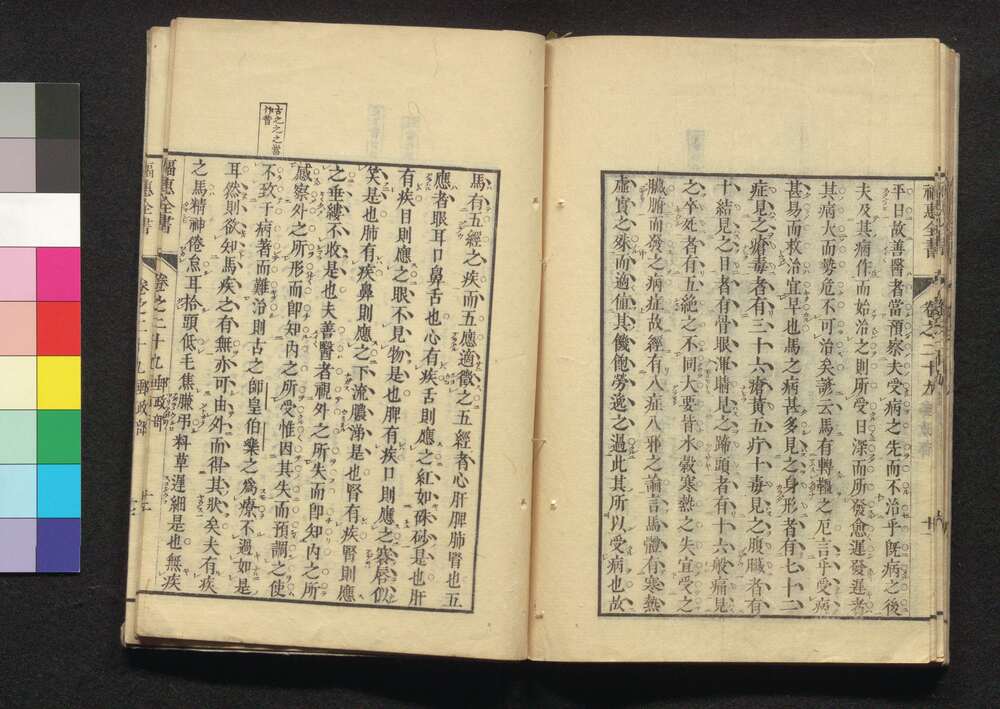 福惠全書 卷之二十九
平日故善醫者當預察夫受病之先而不治乎既病之後
夫及其病作而始治之則所受日深而所發愈遲發遲者
其病大而勢危不可治矣諺云馬有轉韁之厄言乎受病
甚易而救治宜早也馬之病甚多見之身形者有七十二
症見之瘡毒者有三十六瘡黃五疔十毒見之腹臟者有
十結見之日者有骨眼渾睛見之蹄頭者有十六般痛見
之卒死者有五絕之不同大要皆水穀寒熱之失宜受之
臟腑而發之病症故經有八症八邪之論言馬體有寒熱
虛實之殊而適値其饑飽勞逸之過此其所以受病也故
馬有五經之疾而五應適徵之五經者心肝脾肺腎也五
應者眼耳口鼻舌也心有疾舌則應之紅如硃砂是也肝
有疾目則應之眼不見物是也脾有疾口則應之褰唇似
笑是也肺有疾鼻則應之下流膿涕是也腎有疾腎則應
之垂縷不收是也夫善醫者視外之所失而即知内之所
感察外之所形而即知内之所受惟因其失而預調之使
不致于病著而難治則古之師皇伯樂之爲療不過如是
古之之當作昔
耳然則欲知馬疾之有無亦可由外而得其狀矣夫有疾
之馬精神倦怠耳拾頭低毛焦臁吊料草遲細是也無疾
福惠全書 卷之二十九 郵政部
福惠全書 卷之二十九 郵政部